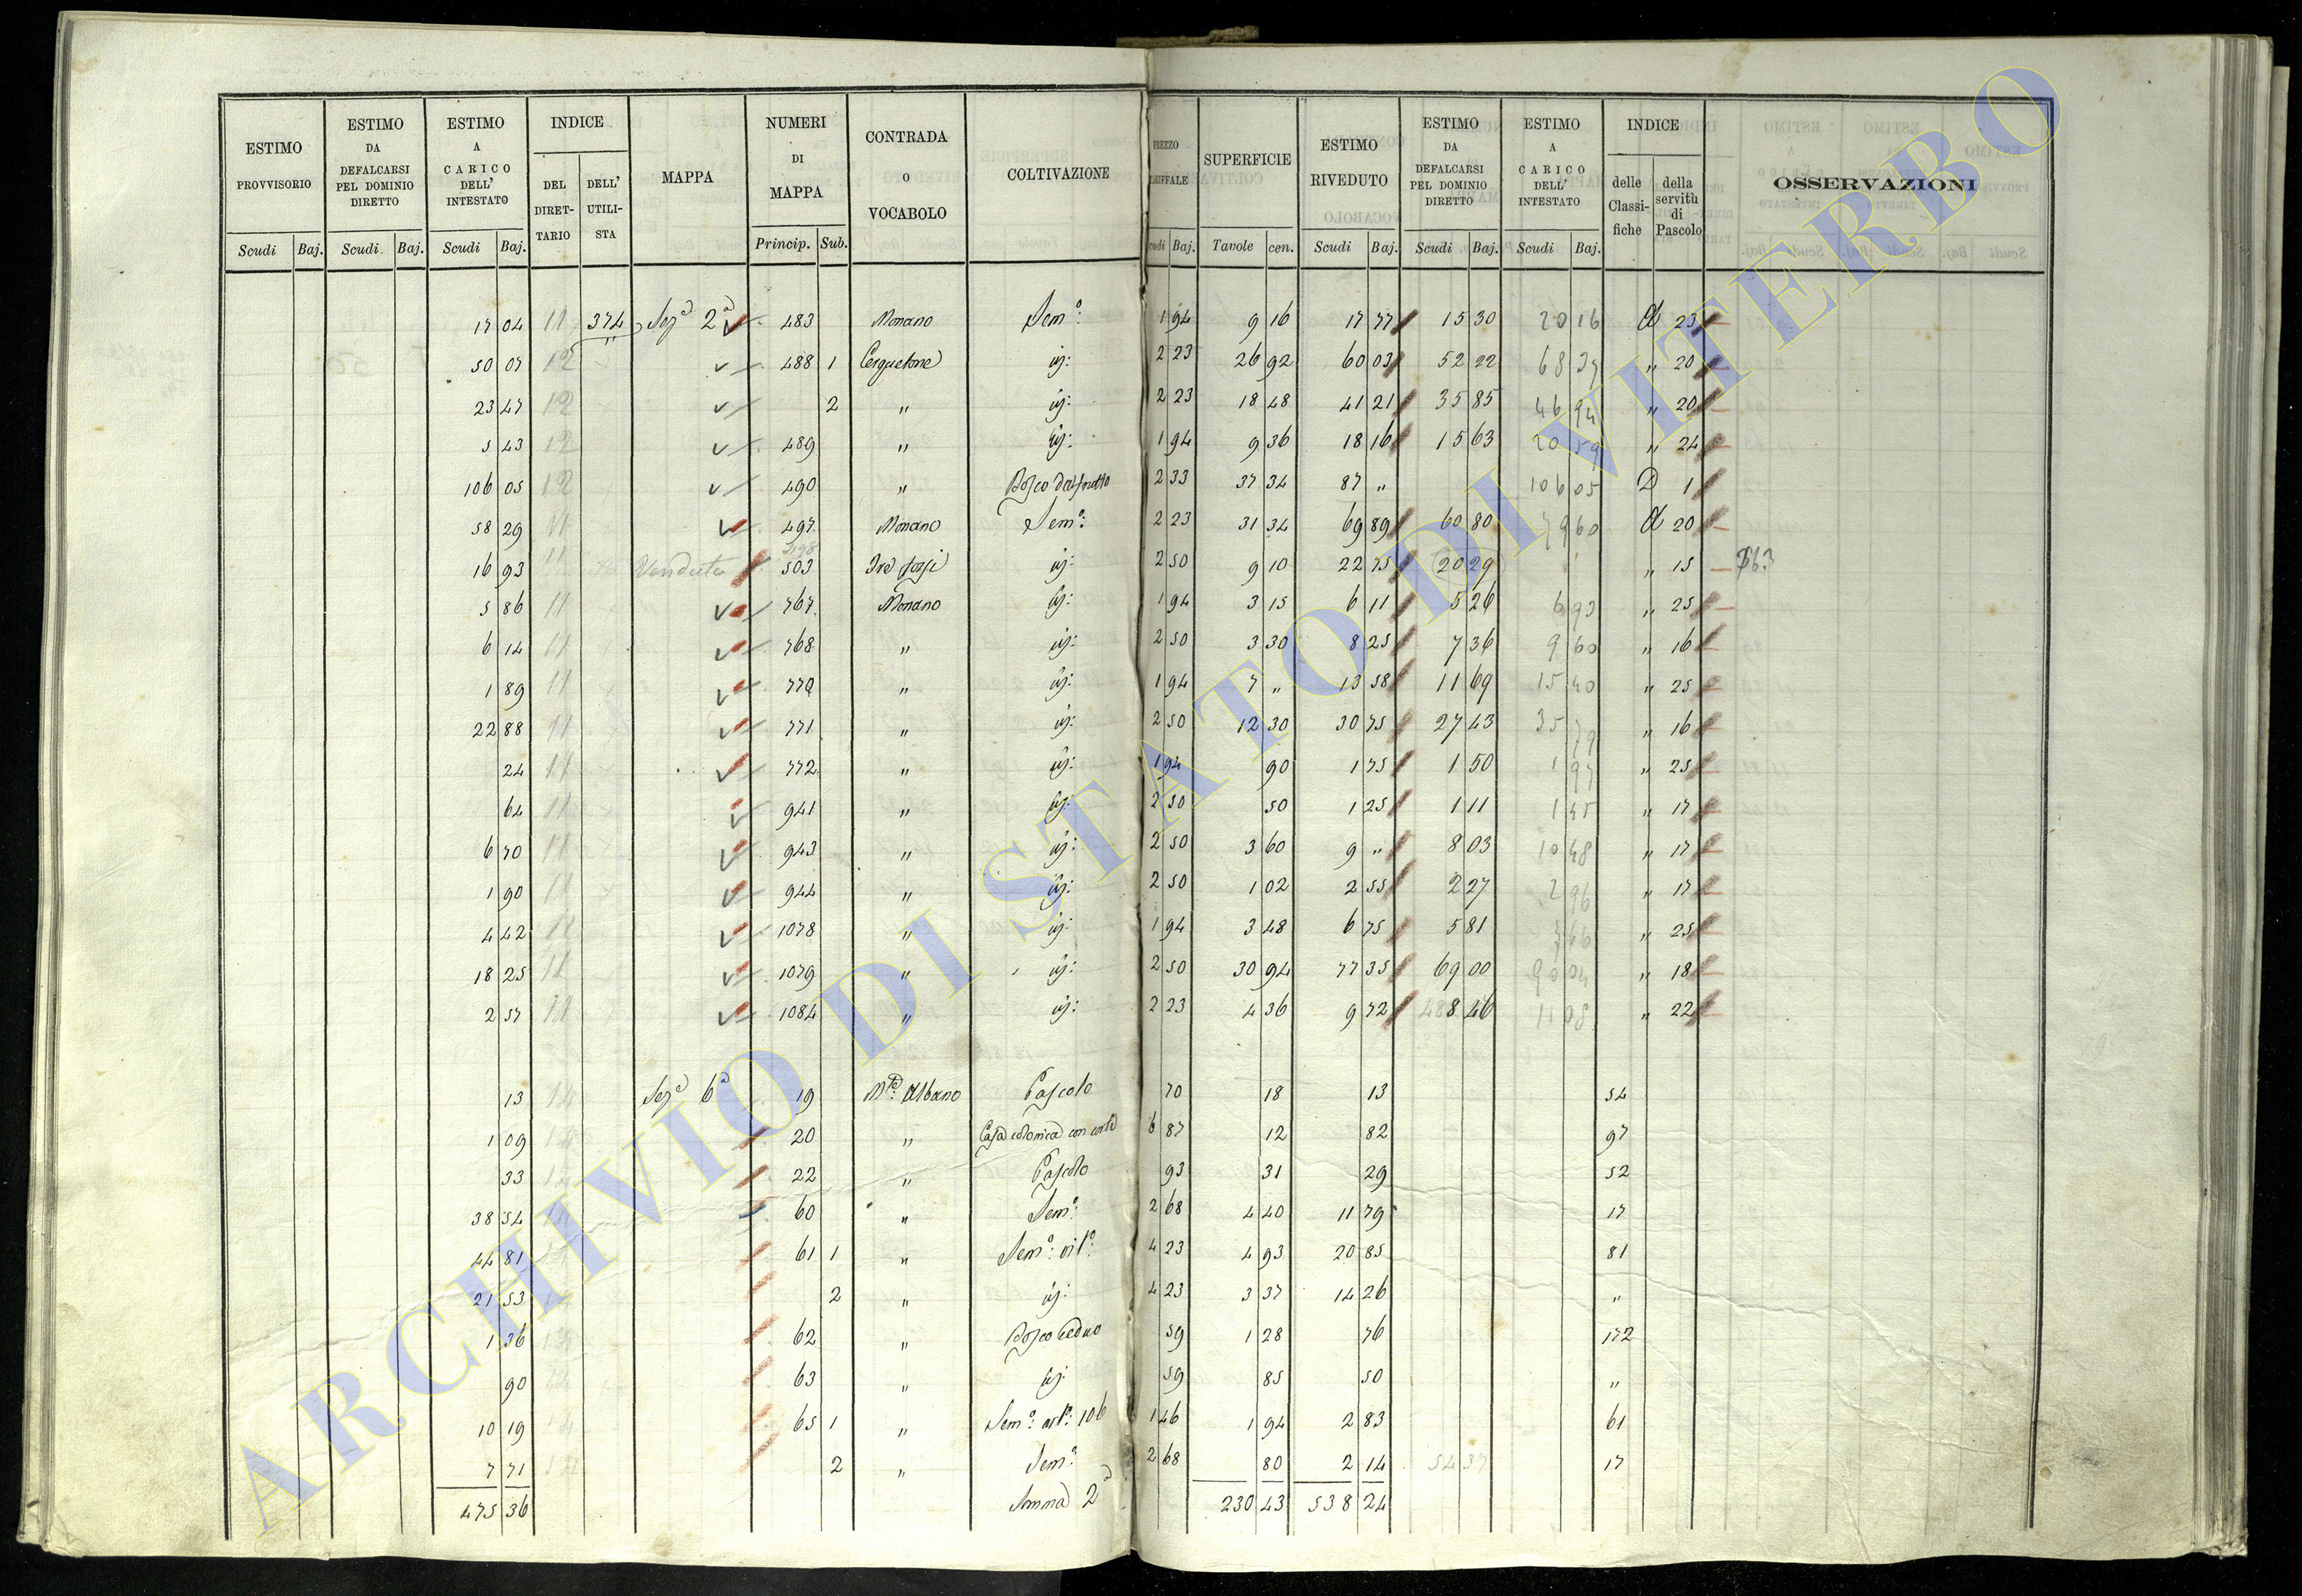 ESTIMO PROVVISORIO Scudi Baj.
ESTIMO DA DEFALCARSI PEL DOMINIO DIRETTO Scudi Baj.
ESTIMO A CARICO DELL' INTESTATO Scudi Baj.
INDICE DEL DIRET-TARIO DELL' UTILI-STA
MAPPA
NUMERI DI MAPPA Princip. Sub.
CONTRADA O VOCABOLO
COLTIVAZIONE
PREZZO TARIFFALE Scudi Baj.
SUPERFICIE Tavole cen.
ESTIMO RIVEDUTO Scudi Baj.
ESTIMO DA DEFALCARSI PEL DOMINIO DIRETTO Scudi Baj.
ESTIMO A CARICO DELL' INTESTATO Scudi Baj.
INDICE delle Classi-fiche della servitù di Pascolo
OSSERVAZIONI
17 04 11 374 Sezª 2ª 483 Monano Semº: 1 94 9 16 17 77 15 30 20 16 A 25
50 07 12 488 1 Cerquetone ig: 2 23 26 92 60 03 52 22 68 37 " 20
23 47 12 2 " ig: 2 23 18 48 41 21 35 85 46 94 " 20
5 43 12 489 " ig: 1 94 9 36 18 16 15 63 20 59 " 24
106 05 12 490 " Bosco da frutto 2 33 37 34 87 " 106 05 D 1
58 29 11 497 Monano Semº: 2 23 31 34 69 89 60 80 79 60 A 20
16 93 11 Venduta 503 Tre fossi ig: 2 50 9 10 22 75 20 29 " 15 763
5 86 11 767 Monano ig: 1 94 3 15 6 11 5 26 6 93 " 25
6 14 11 768 " ig: 2 50 3 30 8 25 7 36 9 60 " 16
1 89 11 770 " ig: 1 94 7 " 13 58 11 69 15 40 " 25
22 88 11 771 " ig: 2 50 12 30 30 75 27 43 35 79 " 16
24 11 772 " ig: 1 94 90 1 75 1 50 1 97 " 25
64 11 941 " ig: 2 50 50 1 25 1 11 1 45 " 17
6 70 11 943 " ig: 2 50 3 60 9 " 8 03 10 48 " 17
1 90 11 944 " ig: 2 50 1 02 2 55 2 27 2 96 " 17
4 42 11 1078 " ig: 1 94 3 48 6 75 5 81 7 66 " 25
18 25 11 1079 " ig: 2 50 30 94 77 35 69 00 90 04 " 18
2 57 11 1084 " ig: 2 23 4 36 9 72 8 46 11 08 " 22
13 12 Sezª 6ª 19 Mte: Albano Pascolo 70 18 13 54
1 09 20 " Casa colonica con corte 6 87 12 82 97
33 12 22 " Pascolo 93 31 29 52
38 54 60 " Semº: 2 68 4 40 11 79 17
44 81 61 1 " Semº: vitº: 4 23 4 93 20 85 81
21 53 2 " ig: 4 23 3 37 14 26 "
1 36 62 " Bosco Ceduo 59 1 28 76 172
90 63 " ig: 59 85 50 "
10 19 65 1 " Semº: 106 1 46 1 94 2 83 61
7 71 2 " Semº: 2 68 80 2 14 54 37 17
475 36 Somma 2ª 230 43 538 24
ARCHIVIO DI STATO DI VITERBO